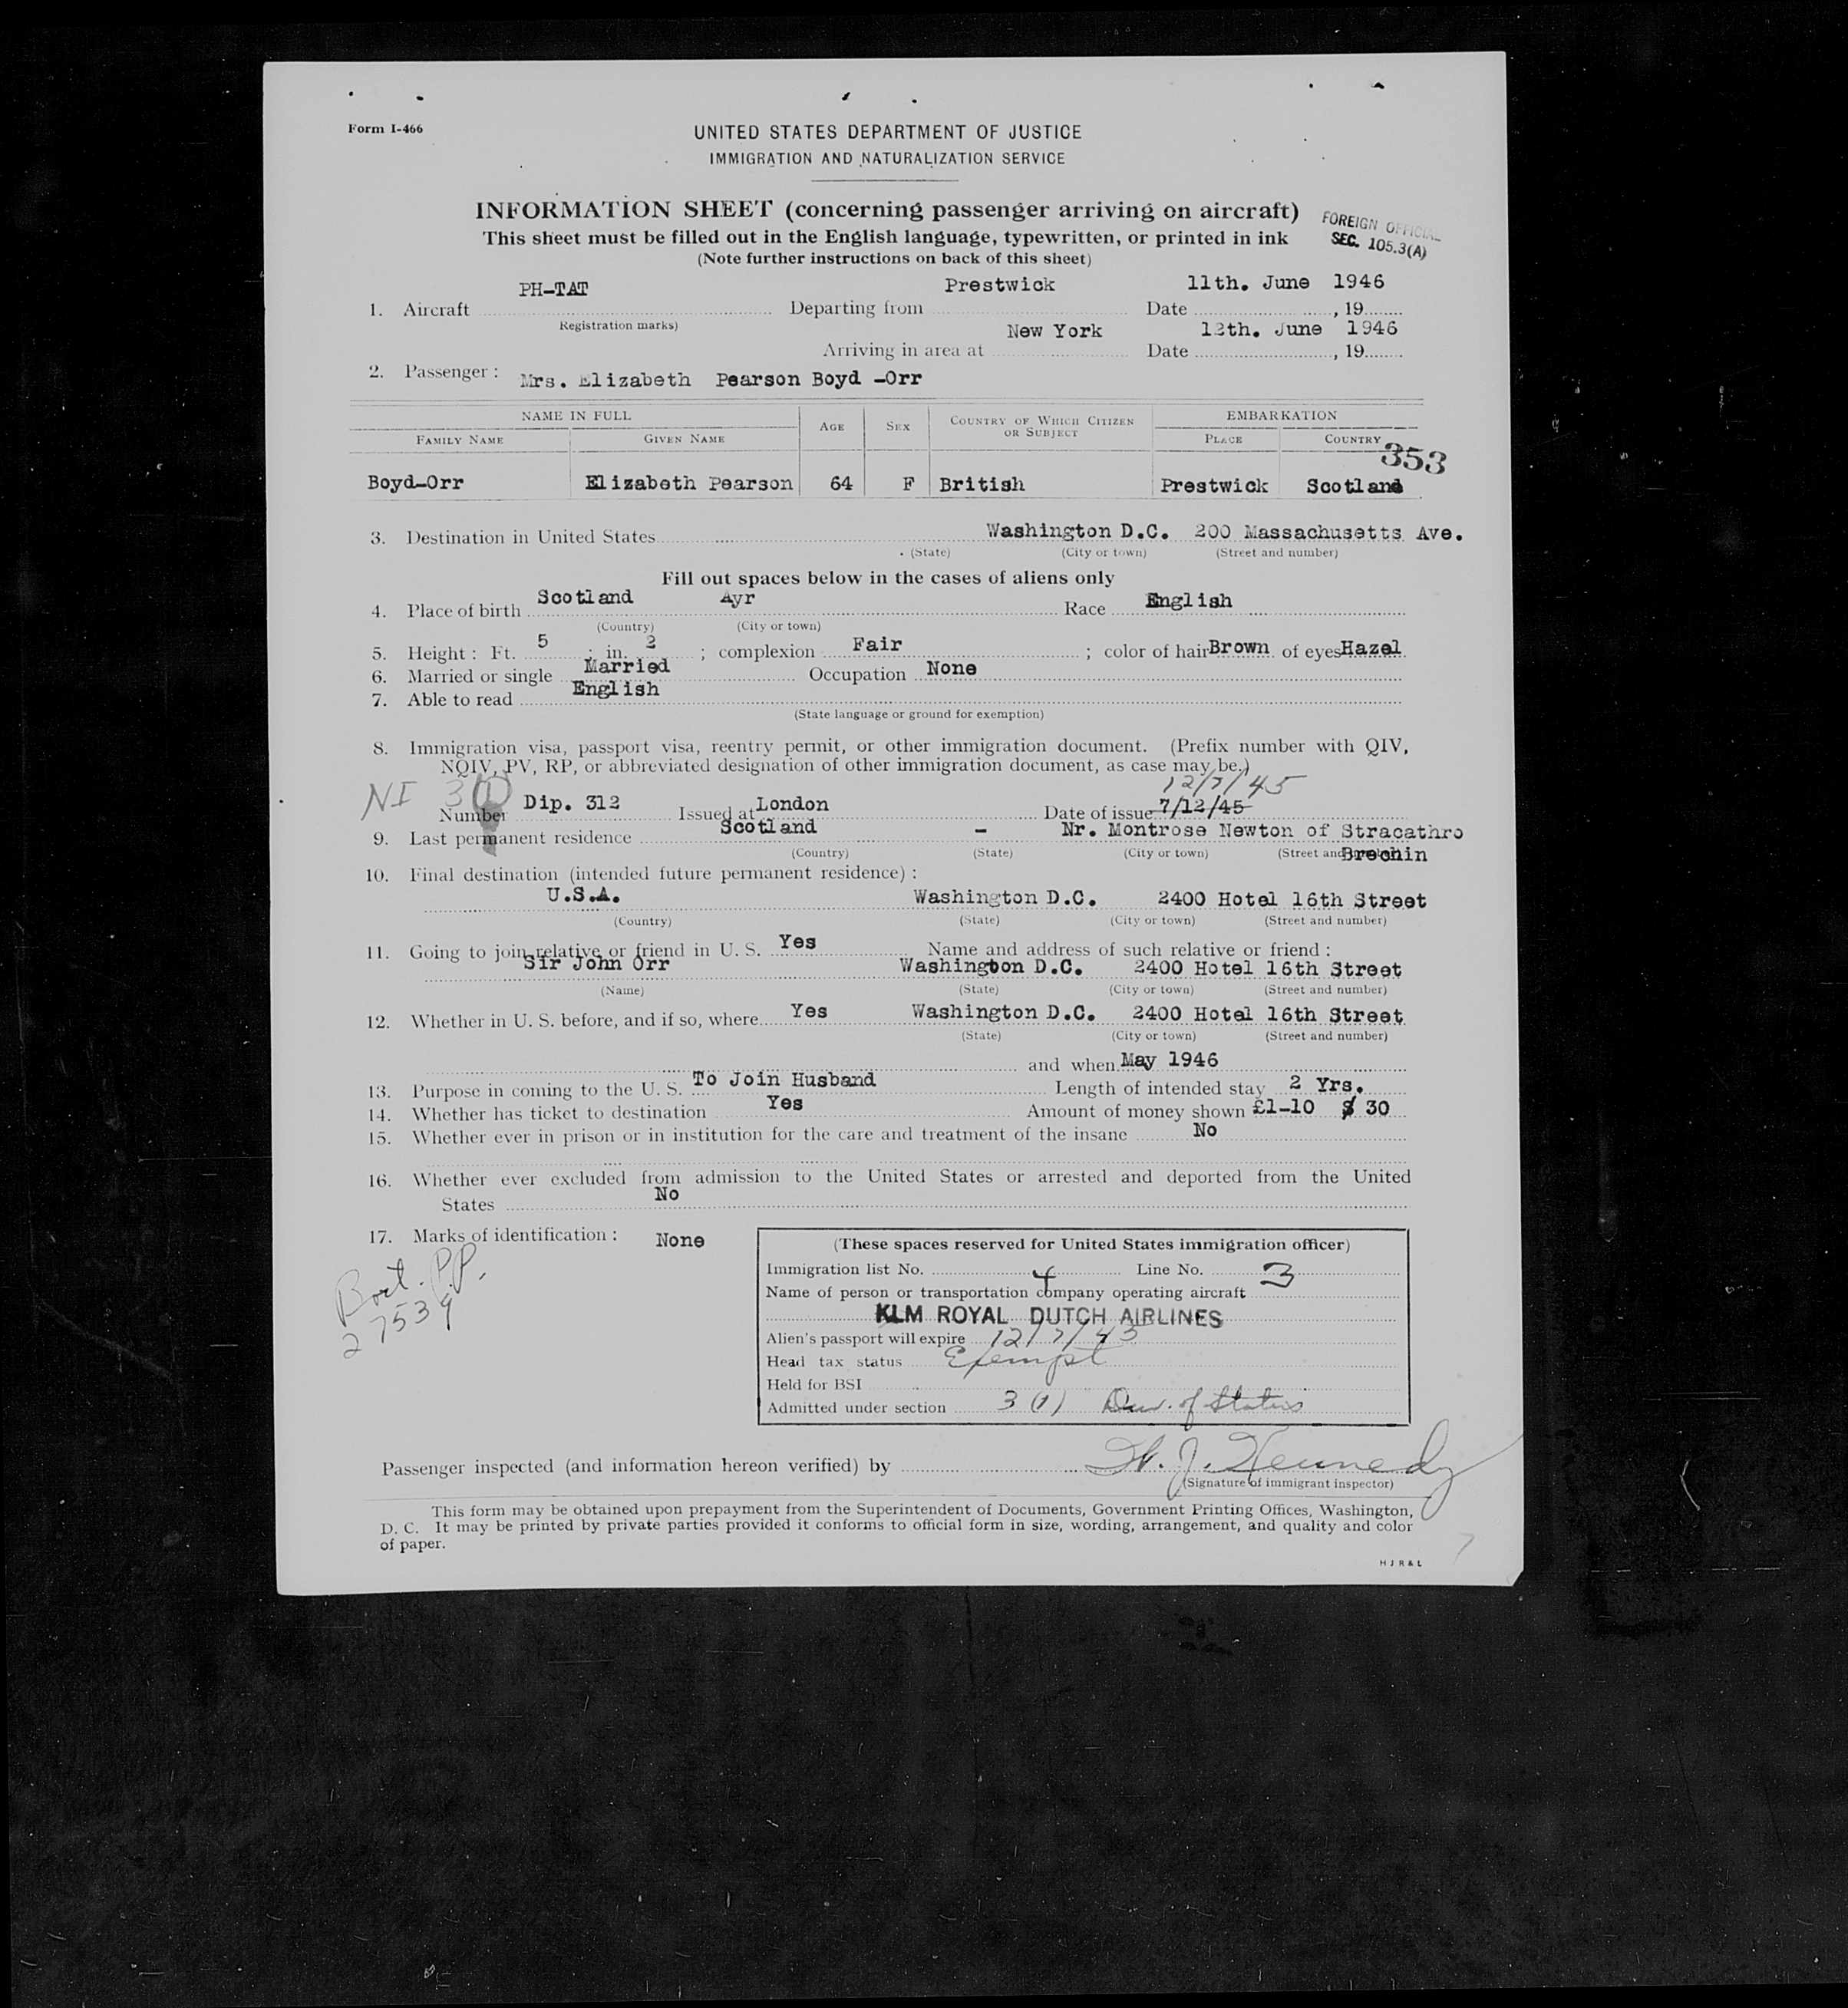 Form I-466
UNITED STATES DEPARTMENT OF JUSTICE
IMMIGRATION AND NATURALIZATION SERVICE
INFORMATION SHEET (concerning passenger arriving on aircraft)
This sheet must be filled out in the English language, typewritten, or printed in ink
(Note further instructions on back of this sheet)
FOREIGN OFFICIAL
SEC. 105.3(A)
1. Aircraft PH-TAT Departing from Prestwick Date 11th. June 1946, 19
Registration marks)
Arriving in area at New York Date 12th. June 1946, 19
2. Passenger: Mrs. Elizabeth Pearson Boyd -Orr
NAME IN FULL AGE SEX COUNTRY OF WHICH CITIZEN OR SUBJECT EMBARKATION
FAMILY NAME GIVEN NAME PLACE COUNTRY
353
Boyd-Orr Elizabeth Pearson 64 F British Prestwick Scotland
3. Destination in United States Washington D.C. 200 Massachusetts Ave.
(State) (City or town) (Street and number)
Fill out spaces below in the cases of aliens only
4. Place of birth Scotland Ayr Race English
(Country) (City or town)
5. Height: Ft. 5; in. 2; complexion Fair; color of hair Brown of eyes Hazel
6. Married or single Married Occupation None
7. Able to read English
(State language or ground for exemption)
8. Immigration visa, passport visa, reentry permit, or other immigration document. (Prefix number with QIV,
NQIV, PV, RP, or abbreviated designation of other immigration document, as case may be.)
NI 3(1) 12/7/45
Number Dip. 312 Issued at London Date of issue 7/12/45
9. Last permanent residence Scotland - Nr. Montrose Newton of Stracathro
(Country) (State) (City or town) (Street and Brechin
10. Final destination (intended future permanent residence):
U.S.A. Washington D.C. 2400 Hotel 16th Street
(Country) (State) (City or town) (Street and number)
11. Going to join relative or friend in U. S. Yes Name and address of such relative or friend:
Sir John Orr Washington D.C. 2400 Hotel 16th Street
(Name) (State) (City or town) (Street and number)
12. Whether in U. S. before, and if so, where Yes Washington D.C. 2400 Hotel 16th Street
(State) (City or town) (Street and number)
and when May 1946
13. Purpose in coming to the U. S. To Join Husband Length of intended stay 2 Yrs.
14. Whether has ticket to destination Yes Amount of money shown £1-10 $ 30
15. Whether ever in prison or in institution for the care and treatment of the insane No
16. Whether ever excluded from admission to the United States or arrested and deported from the United
States No
17. Marks of identification: None
Brit. P.P.
27539
(These spaces reserved for United States immigration officer)
Immigration list No. 4 Line No. 3
Name of person or transportation company operating aircraft
KLM ROYAL DUTCH AIRLINES
Alien's passport will expire 12/7/45
Head tax status Exempt
Held for BSI
Admitted under section 3 (1) Dur. of Status
Passenger inspected (and information hereon verified) by J. Kennedy
(Signature of immigrant inspector)
This form may be obtained upon prepayment from the Superintendent of Documents, Government Printing Offices, Washington,
D. C. It may be printed by private parties provided it conforms to official form in size, wording, arrangement, and quality and color
of paper.
H J R & L